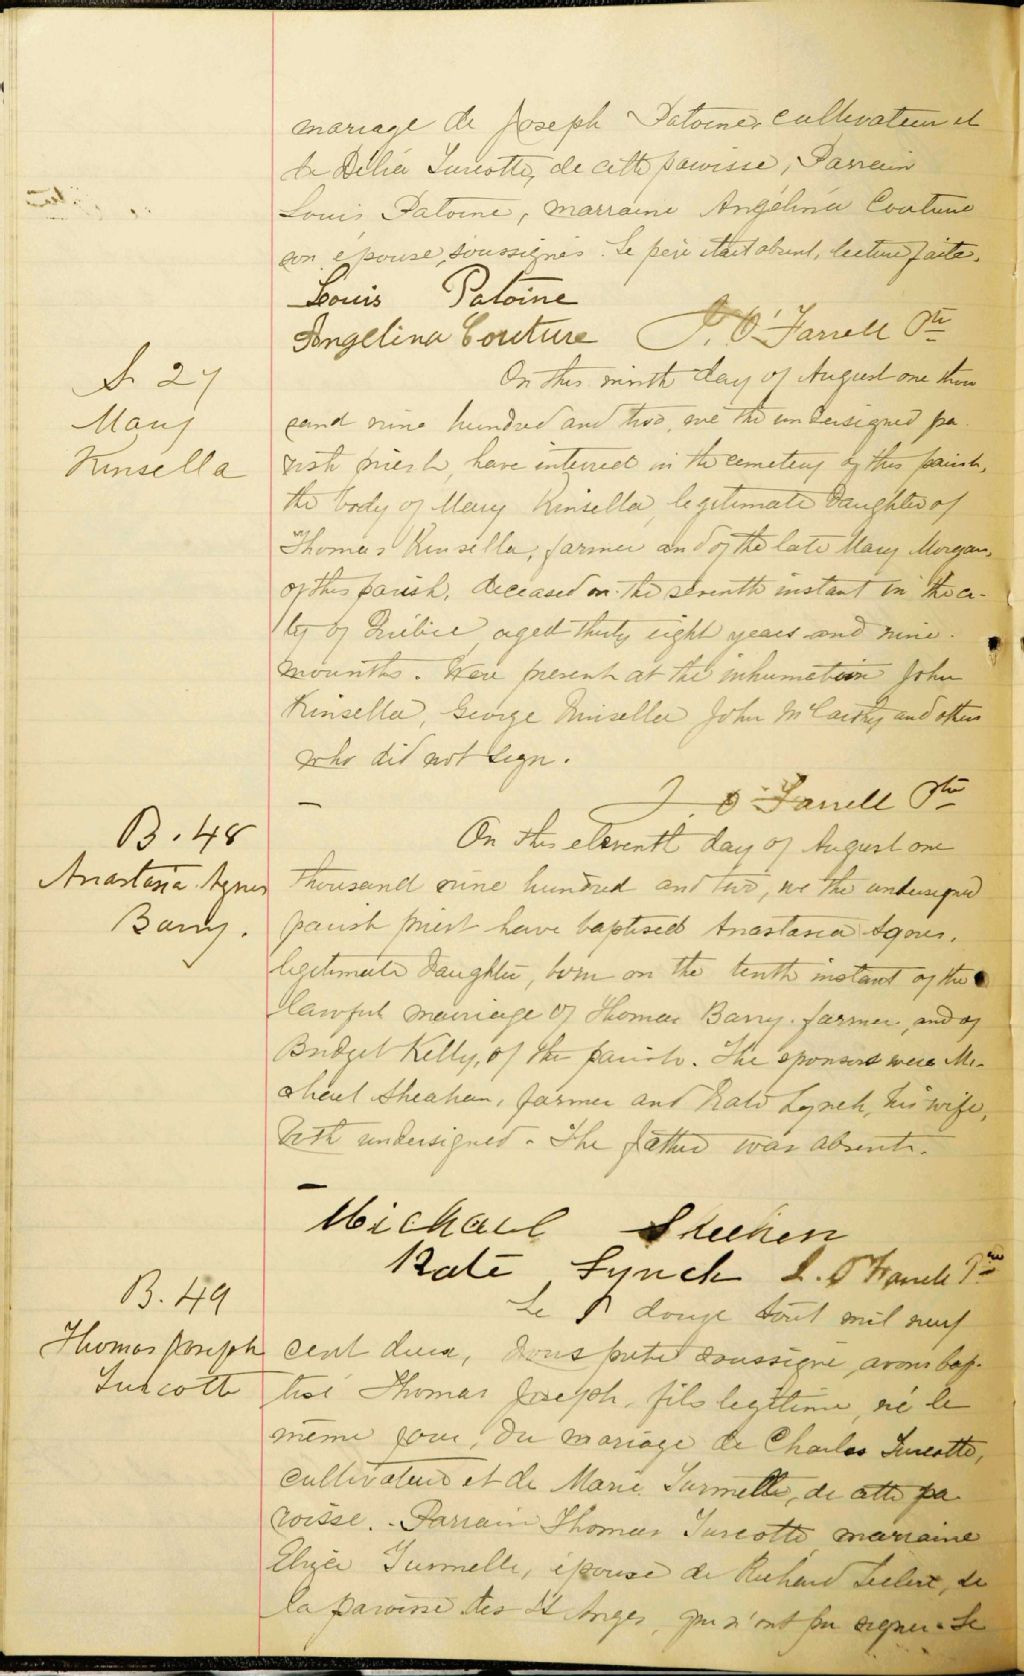 mariage de Joseph Patoine cultivateur et
de Délia Turcotte, de cette paroisse, Parrain
Louis Patoine, marraine Angélina Couture
son épouse, soussignés. Le père était absent, lecture faite.
Louis Patoine
Angelina Couture J. O'Farrell Ptre
S. 27
Mary
Kinsella
On this ninth day of August one thou
sand nine hundred and two, we the undersigned pa
rish priest, have interred in the cemetery of this parish,
the body of Mary Kinsella, legitimate daughter of
Thomas Kinsella, farmer and of the late Mary Morgan,
of this parish, deceased on the seventh instant in the ci-
ty of Québec, aged thirty eight years and nine
mounths. Were present at the inhumation John
Kinsella, George Kinsella John McCarthy and others
who did not sign.
J. O'Farrell Ptre
B. 48
Anastasia Agnes
Barry.
On this eleventh day of August one
thousand nine hundred and two, we the undersigned
parish priest have baptised Anastasia Agnes,
legitimate daughter, born on the tenth instant of the
lawful marriage of Thomas Barry farmer, and of
Bridget Kelly, of this parish. The sponsors were Mi-
chael Sheahan, farmer and Kate Lynch, his wife,
both undersigned. The father was absent.
Michael Sheehen
Kate Lynch J. O'Farrell Ptre
B. 49
Thomas Joseph
Turcotte
Le douze Août mil neuf
cent deux, Nous prêtre soussigné, avons bap-
tisé Thomas Joseph, fils légitime, né le
même jour, du mariage de Charles Turcotte,
cultivateur et de Marie Turmelle, de cette pa
roisse. Parrain Thomas Turcotte marraine
Turmelle, épouse de Richard Leclerc, de
la paroisse des Sts Anges, qui n'ont pu signer. Le